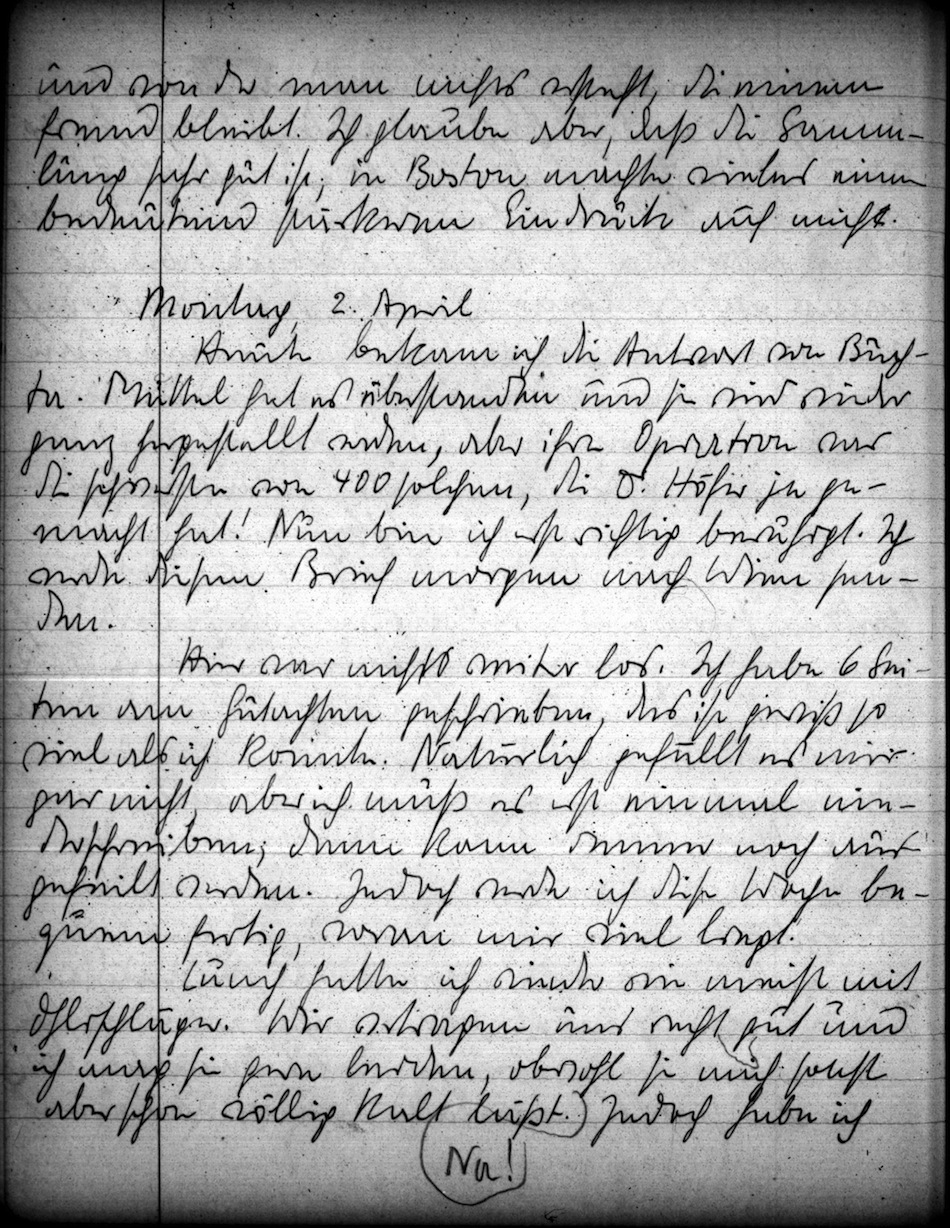 und von der man nichts versteht, die einem
fremd bleibt. Ich glaube aber, daß die Samm-
lung sehr gut ist; in Boston machte vieles einen
bedeutend stärkeren Eindruck auf mich.
Montag, 2. April
Heute bekam ich die Antwort von
Muttel hat es überstanden und sie wird wieder
ganz hergestellt werden, aber ihre Operation war
die schwerste von 400 solchen, die D. Höfer je ge-
macht hat! Nun bin ich erst richtig beruhigt. Ich
werde diesen Brief morgen nach Wien sen-
den.
Hier war nichts weiter los. Ich habe 6 Sei-
ten am Gutachten geschrieben, das ist gewiß so
viel als ich konnte. Natürlich gefällt es mir
gar nicht, aber ich muß es erst einmal nie-
derschreiben; dann kann immer noch
gefeilt werden. Jedoch werde ich diese Woche be-
quem fertig, woran mir viel liegt.
Lunch hatte ich wieder wie meist mit
Ohlschlager. Wir vertragen uns recht gut und
ich mag sie gern leiden, obwohl sie mich sonst
aber schon völlig kalt läßt. Jedoch habe ich
Na!